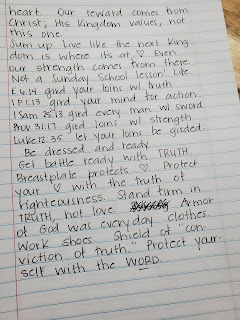 heart. Our reward comes from
Christ; His Kingdom values, not
this one.
Sum up: Live like the next King-
dom is where its at ♡. Even
our strength comes from there.
Not a Sunday School lesson! Life
E 6.14 gird your loins w/ truth
1 P 1.13 gird your mind for action
1 Sam 25.13 gird every man w/ sword
Prov 31.17 gird loins w/ strength
Luke 12.35 let your loins be girded.
Be dressed and ready.
Get battle ready with TRUTH.
Breastplate protects ♡. Protect
your ♡ with the truth of
righteousness. Stand firm in
TRUTH, not love. Armor
of God was everyday clothes.
Work shoes. Shield of "con-
viction of truth." Protect your-
self with the WORD.